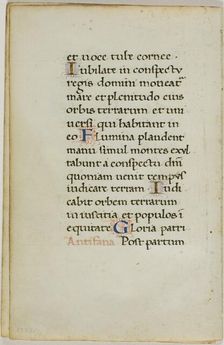 et uoce tube cornee.
Iubilate in conspectu
regis domini moueat
mare et plenitudo eius
orbis terrarum et uni
uersi qui habitant in
eo Flumina plaudent
manu simul montes exul
tabunt a conspectu dn̄i
quoniam uenit tempus
iudicare terram Iudi
cabit orbem terrarum
in iusticia et populos ī
equitate Gloria patri
Antifana Post partum